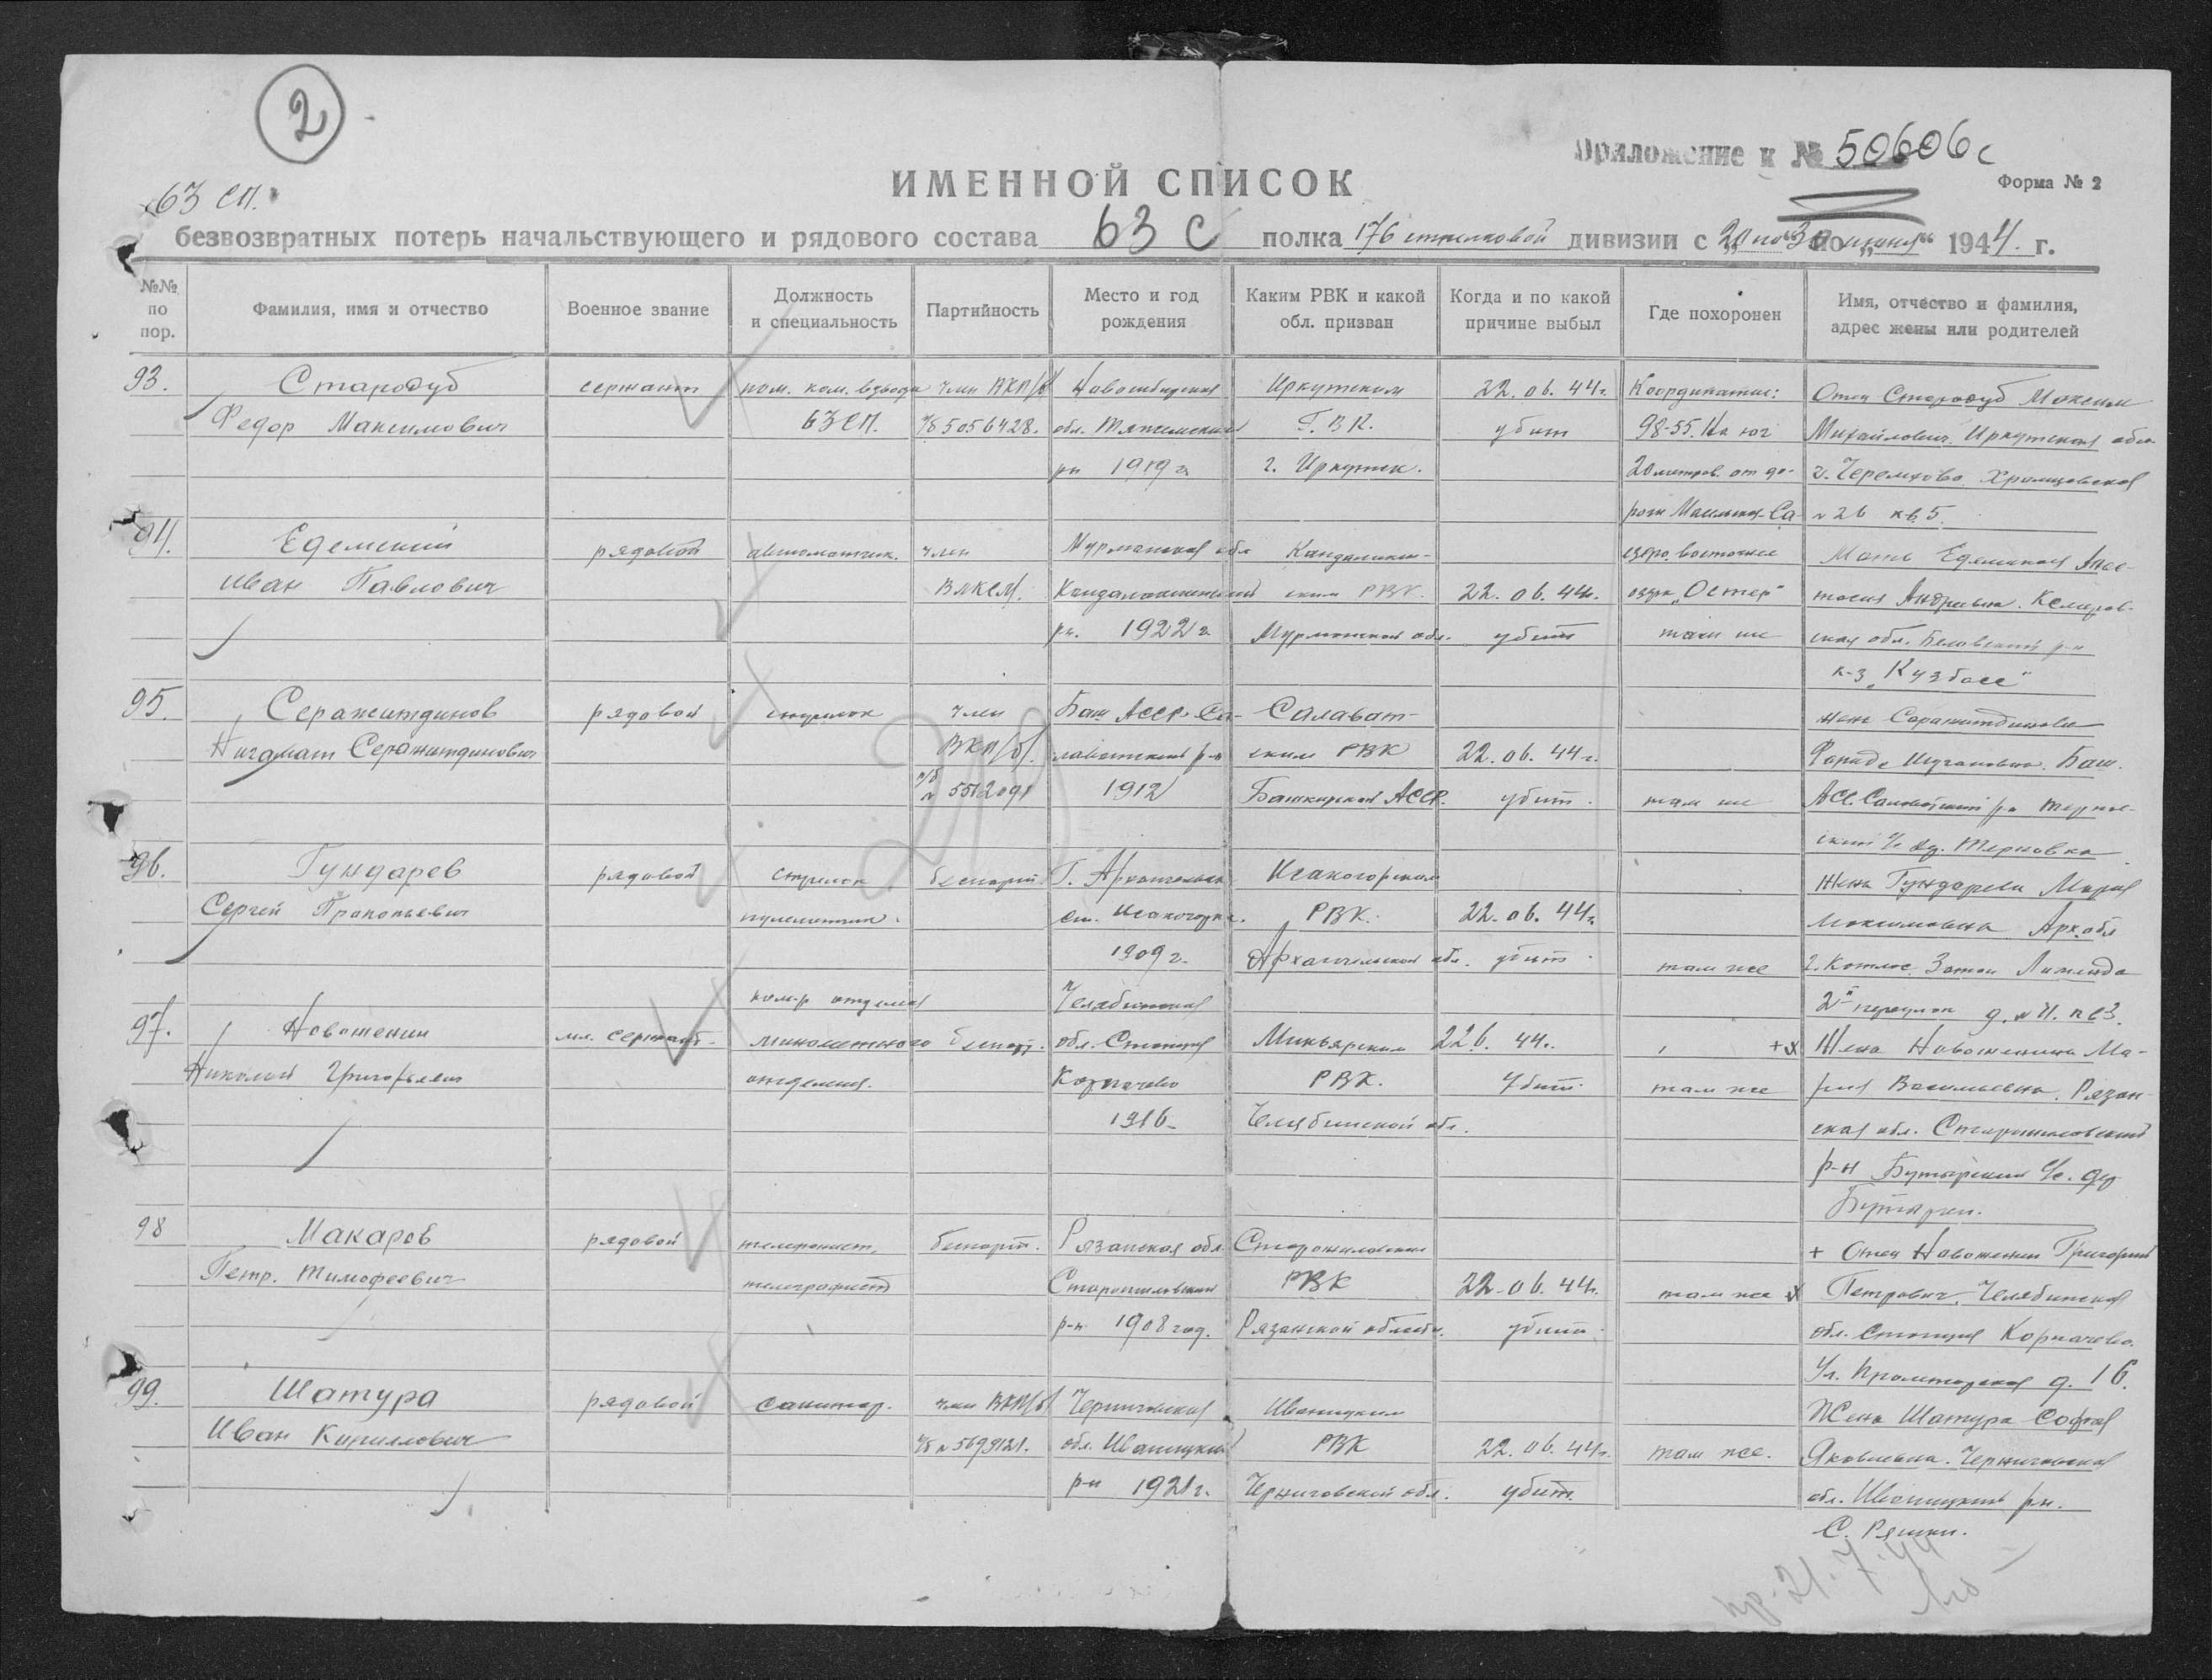 2
63 СП.
Приложение к № 50606с
Форма № 2
ИМЕННОЙ СПИСОК
безвозвратных потерь начальствующего и рядового состава 63 С полка 176 стрелковой дивизии с 20 по 30 июня 1944 г.
№№ по пор.
Фамилия, имя и отчество
Военное звание
Должность и специальность
Партийность
Место и год рождения
Каким РВК и какой обл. призван
Когда и по какой причине выбыл
Где похоронен
Имя, отчество и фамилия, адрес жены или родителей
93. Стародуб сержант пом. ком. взвода член ВКП/б Новосибирская Иркутским 22.06.44г. Координаты: Отец Стародуб Максим
Федор Максимович 63 СП. п/б 5056428. обл. Тяжинский Г.В.К. убит 98-55. На юг Михайлович. Иркутская обл.
рн 1919 г. г. Иркутск. 20 метров. от до- г. Черемхово
роги № 26 кв. 5.
94. Едемский рядовой автоматчик. член Мурманская обл Кандалакш- озеро, восточнее Мать Едемская Анас-
Иван Павлович ВЛКСМ. Кандалакшский ским РВК. 22.06.44г. озера "Остер" тасия Андреевна. Кемеров-
рн. 1922 г. Мурманской обл. убит там же ская обл. Беловский р-н
к-з "Кузбасс"
95. Серажитдинов рядовой стрелок член Баш АССР Са- Салават- жена Серажитдинова
Нигамат Серажитдинович ВКП/б/. лаватский р-н ским РВК 22.06.44г. Баш.
п/б № 5512091 1912 Башкирской АССР. убит. там же АСС. Салаватский р-н
дер. Терновка
96. Гундарев рядовой стрелок беспарт. Г. Архангельск Исакогорским Жена Гундарева Мария
Сергей Прокопьевич пулеметчик. ст. Исакогорка. РВК. 22.06.44г. Максимовна Арх. обл
1909 г. Архангельской обл. убит. там же г. Котлас. Затон Лименда
ком-р отделен Челябинская 2й переулок д. № 11. кв3.
97. Новоженин мл. сержант минометного беспарт. обл. Станция Миньярским 22.6.44. +х Жена Новоженина Ма-
Николай Григорьевич отделения. Кропачево РВК. Убит. там же рия Васильевна. Рязан-
1916 Челябинской обл. ская обл. Старожиловский
р-н Бутырский с/с. дер
98 Макаров рядовой телефонист, беспарт. Рязанская обл. Старожиловским + Отец Новоженин Григорий
Петр. Тимофеевич телеграфист Старожиловский РВК 22.06.44г. там же х Петрович, Челябинская
р-н 1908 год. Рязанской области. убит. обл. Станция Кропачево.
Ул. Пролетарская д. 16.
99. Шатура рядовой санитар. член ВКП/б/ Черниговская Иваницким Жена Шатура Софья
Иван Кириллович п/б № 5699121. обл. Иваницкий РВК 22.06.44г. там же. Яковлевна. Черниговская
р-н 1921г. Черниговской обл. убит. обл. Иваницкий рн.
С. Ряшки.
пр. 21.7.44